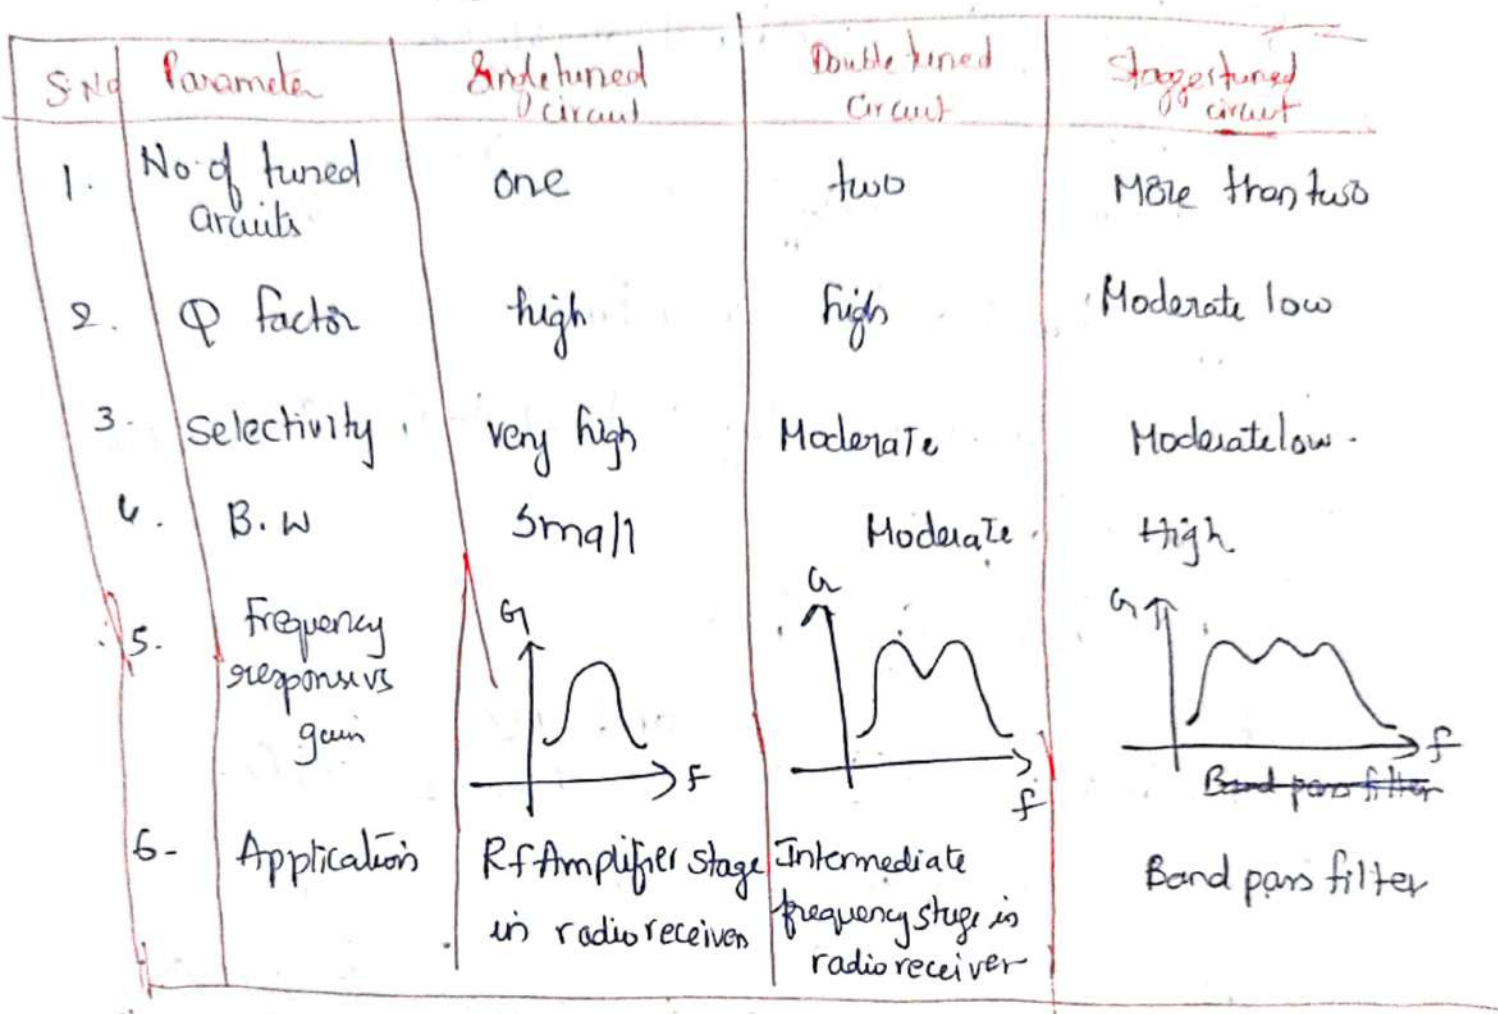 S.No Parameter Single tuned circuit Double tuned circuit Stagger tuned circuit
1. No. of tuned circuits one two More than two
2. Q factor high high Moderate low
3. Selectivity very high Moderate Moderate low.
4. B.W Small Moderate High
5. Frequency response vs gain
G f
G f
G f
Band pass filter
6- Application Rf Amplifier stage in radio receiver Intermediate frequency stage in radio receiver Band pass filter